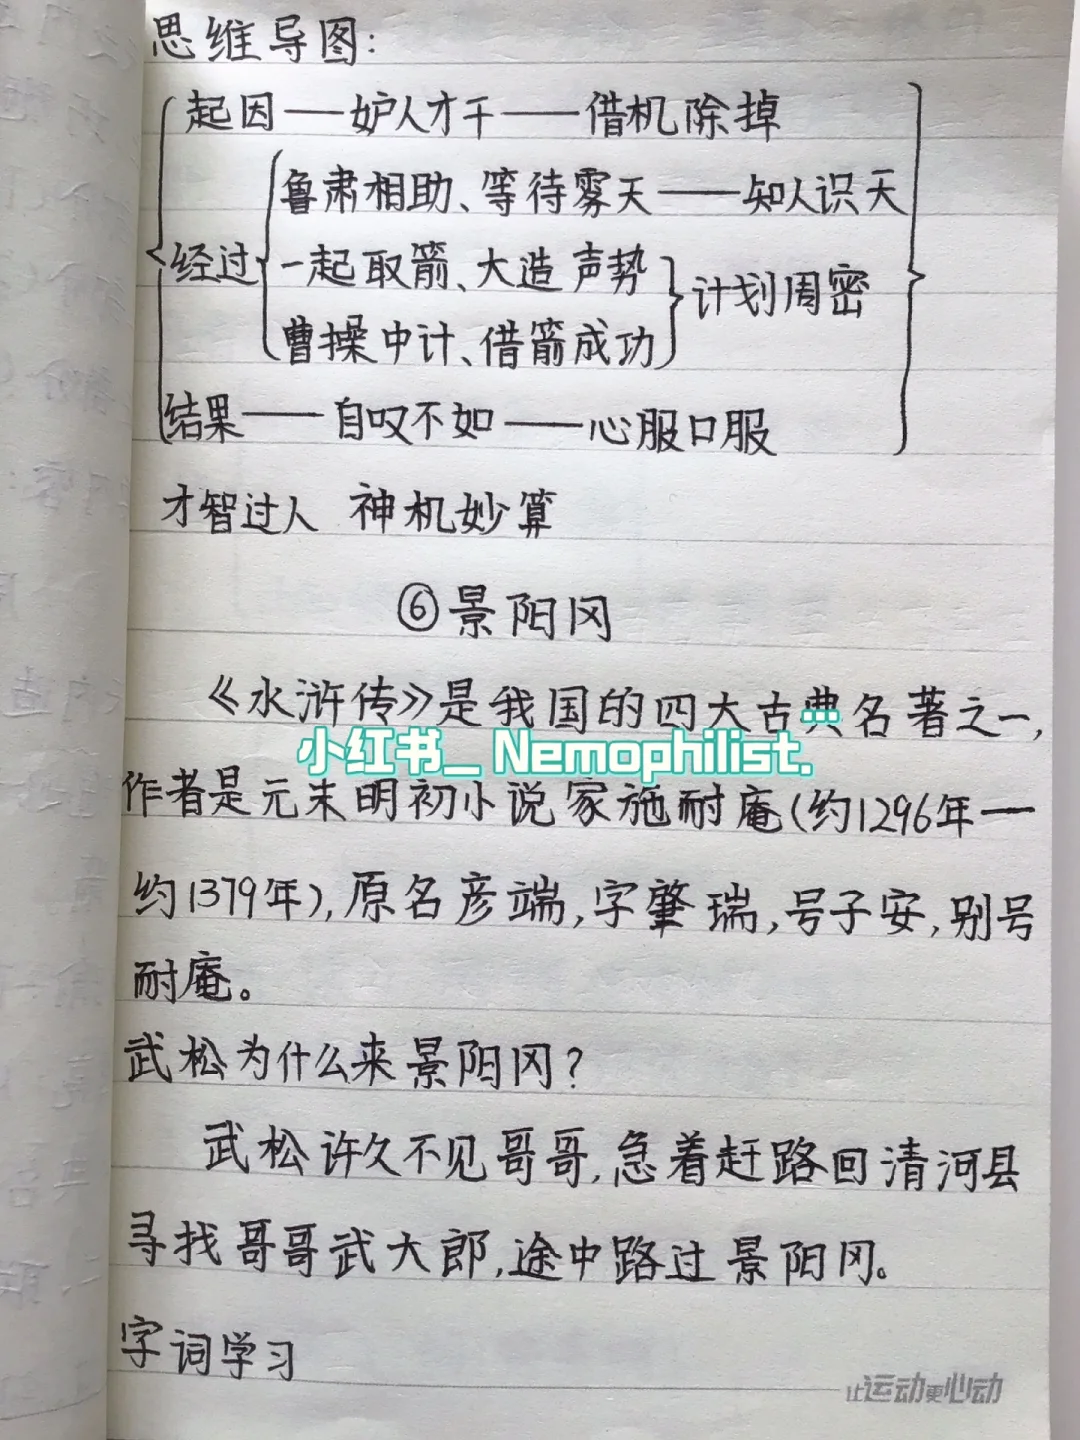 思维导图：
起因——妒人才干——借机除掉
鲁肃相助、等待雾天——知人识天
经过 一起取箭、大造声势 计划周密
曹操中计、借箭成功
结果——自叹不如——心服口服
才智过人 神机妙算
⑥景阳冈
《水浒传》是我国的四大古典名著之一，
小红书_ Nemophilist...
作者是元末明初小说家施耐庵(约1296年—
约1379年)，原名彦端，字肇瑞，号子安，别号
耐庵。
武松为什么来景阳冈？
武松许久不见哥哥，急着赶路回清河县
寻找哥哥武大郎，途中路过景阳冈。
字词学习
让运动更心动